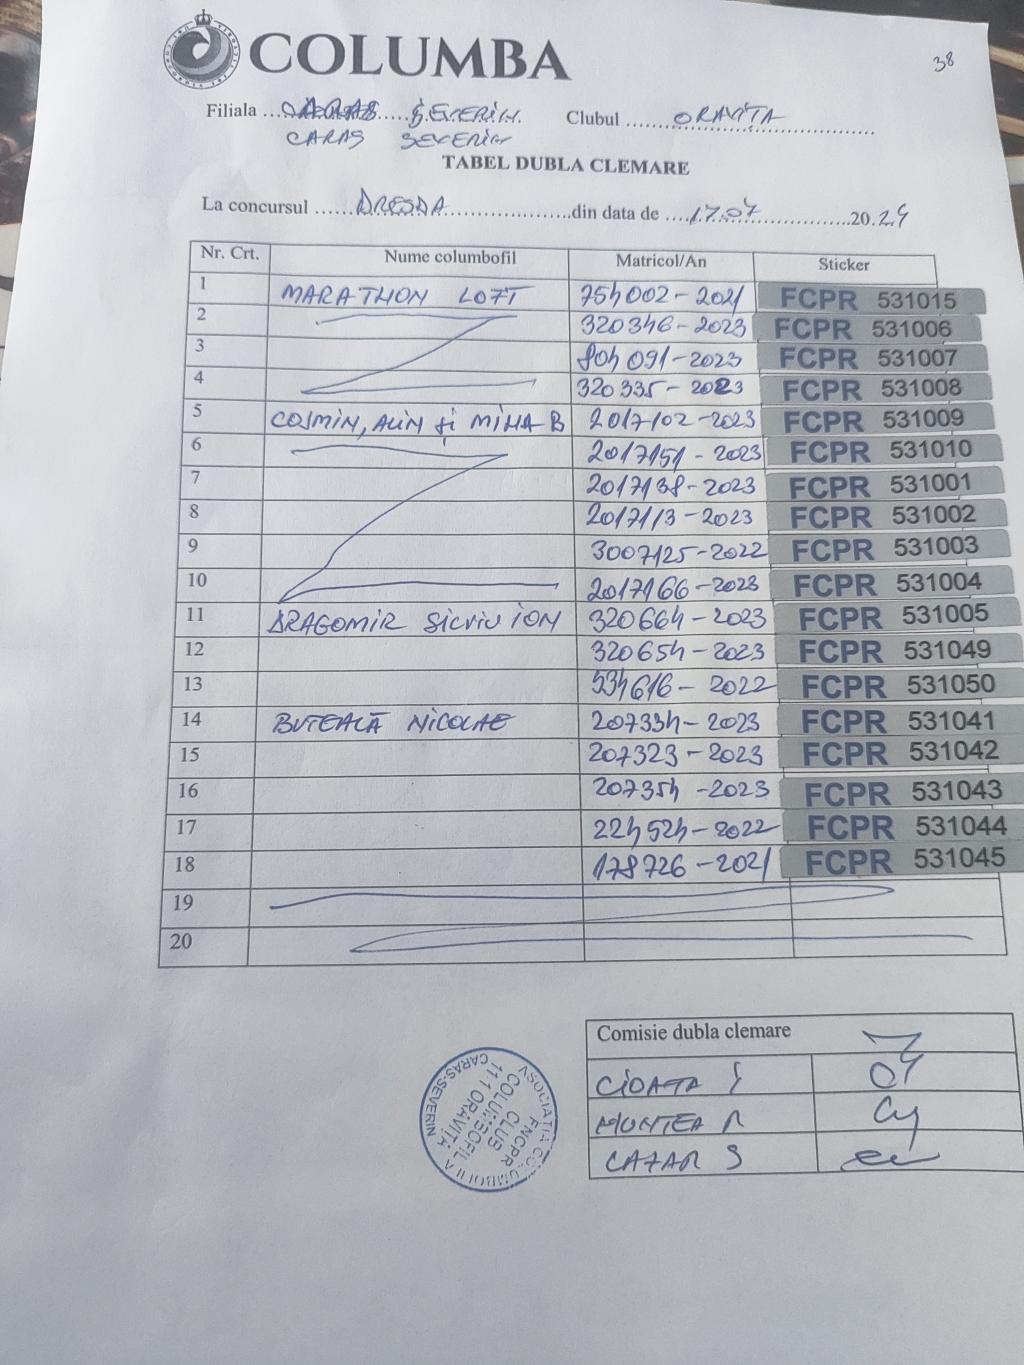 COLUMBA
38
Filiala ... CARAS ... SEVERIN. Clubul ... ORAVITA
CARAS SEVERIN
TABEL DUBLA CLEMARE
La concursul ... DRESDA ... din data de ... 17.07 ... 20.24
Nr. Crt. Nume columbofil Matricol/An Sticker
1 MARATHON LOFT 754002-2021 FCPR 531015
2 320346-2023 FCPR 531006
3 804091-2023 FCPR 531007
4 320335-2023 FCPR 531008
5 COSMIN, ALIN și MIHA B 2017102-2023 FCPR 531009
6 2017151-2023 FCPR 531010
7 2017138-2023 FCPR 531001
8 2017113-2023 FCPR 531002
9 3007125-2022 FCPR 531003
10 2017166-2023 FCPR 531004
11 DRAGOMIR Silviu ION 320664-2023 FCPR 531005
12 320654-2023 FCPR 531049
13 534616-2022 FCPR 531050
14 BUTEALĂ NICOLAE 207334-2023 FCPR 531041
15 207323-2023 FCPR 531042
16 207354-2023 FCPR 531043
17 224524-2022 FCPR 531044
18 178726-2021 FCPR 531045
19
20
Comisie dubla clemare
CIOATA I
MUNTEA R
CAZAR S
ASOCIATIA COLUMBOFILA
CARAS-SEVERIN
FNCPR
CLUB
COLUMBOFIL
11-1 ORAVIȚA